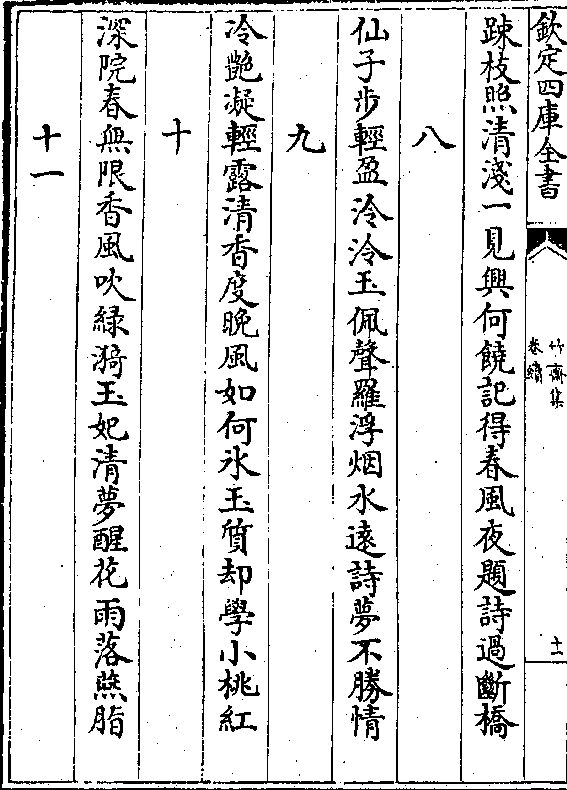 欽定四庫全書
竹齋集
卷續
十一
踈枝照清淺一見興何饒記得春風夜題詩過斷橋
八
仙子步輕盈泠泠玉佩聲羅浮烟水遠詩夢不勝情
九
冷艶凝輕露清香度晚風如何氷玉質却學小桃紅
十
深院春無限香風吹綠漪玉妃清夢醒花雨落燕脂
十一